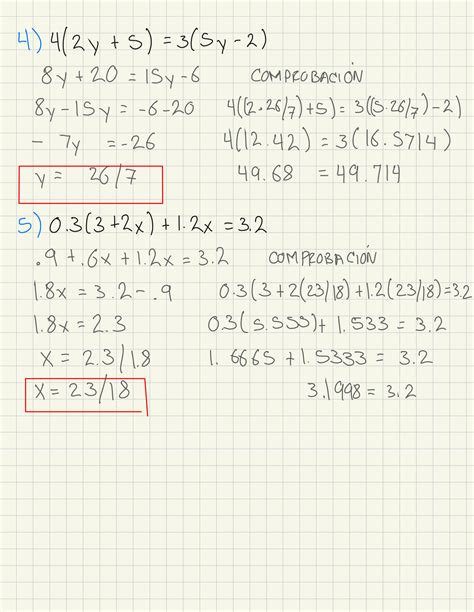 4) 4(2y + 5) = 3(5y - 2)
8y + 20 = 15y - 6
8y - 15y = -6 - 20
- 7y = -26
y = 26/7
COMPROBACIÓN
4((2·26/7) + 5) = 3((5·26/7) - 2)
4(12.42) = 3(16.5714)
49.68 = 49.714
5) 0.3(3 + 2x) + 1.2x = 3.2
.9 + .6x + 1.2x = 3.2
1.8x = 3.2 - .9
1.8x = 2.3
x = 2.3/1.8
x = 23/18
COMPROBACIÓN
0.3(3 + 2(23/18) + 1.2(23/18) = 3.2
0.3(5.555) + 1.533 = 3.2
1.6665 + 1.5333 = 3.2
3.1998 = 3.2